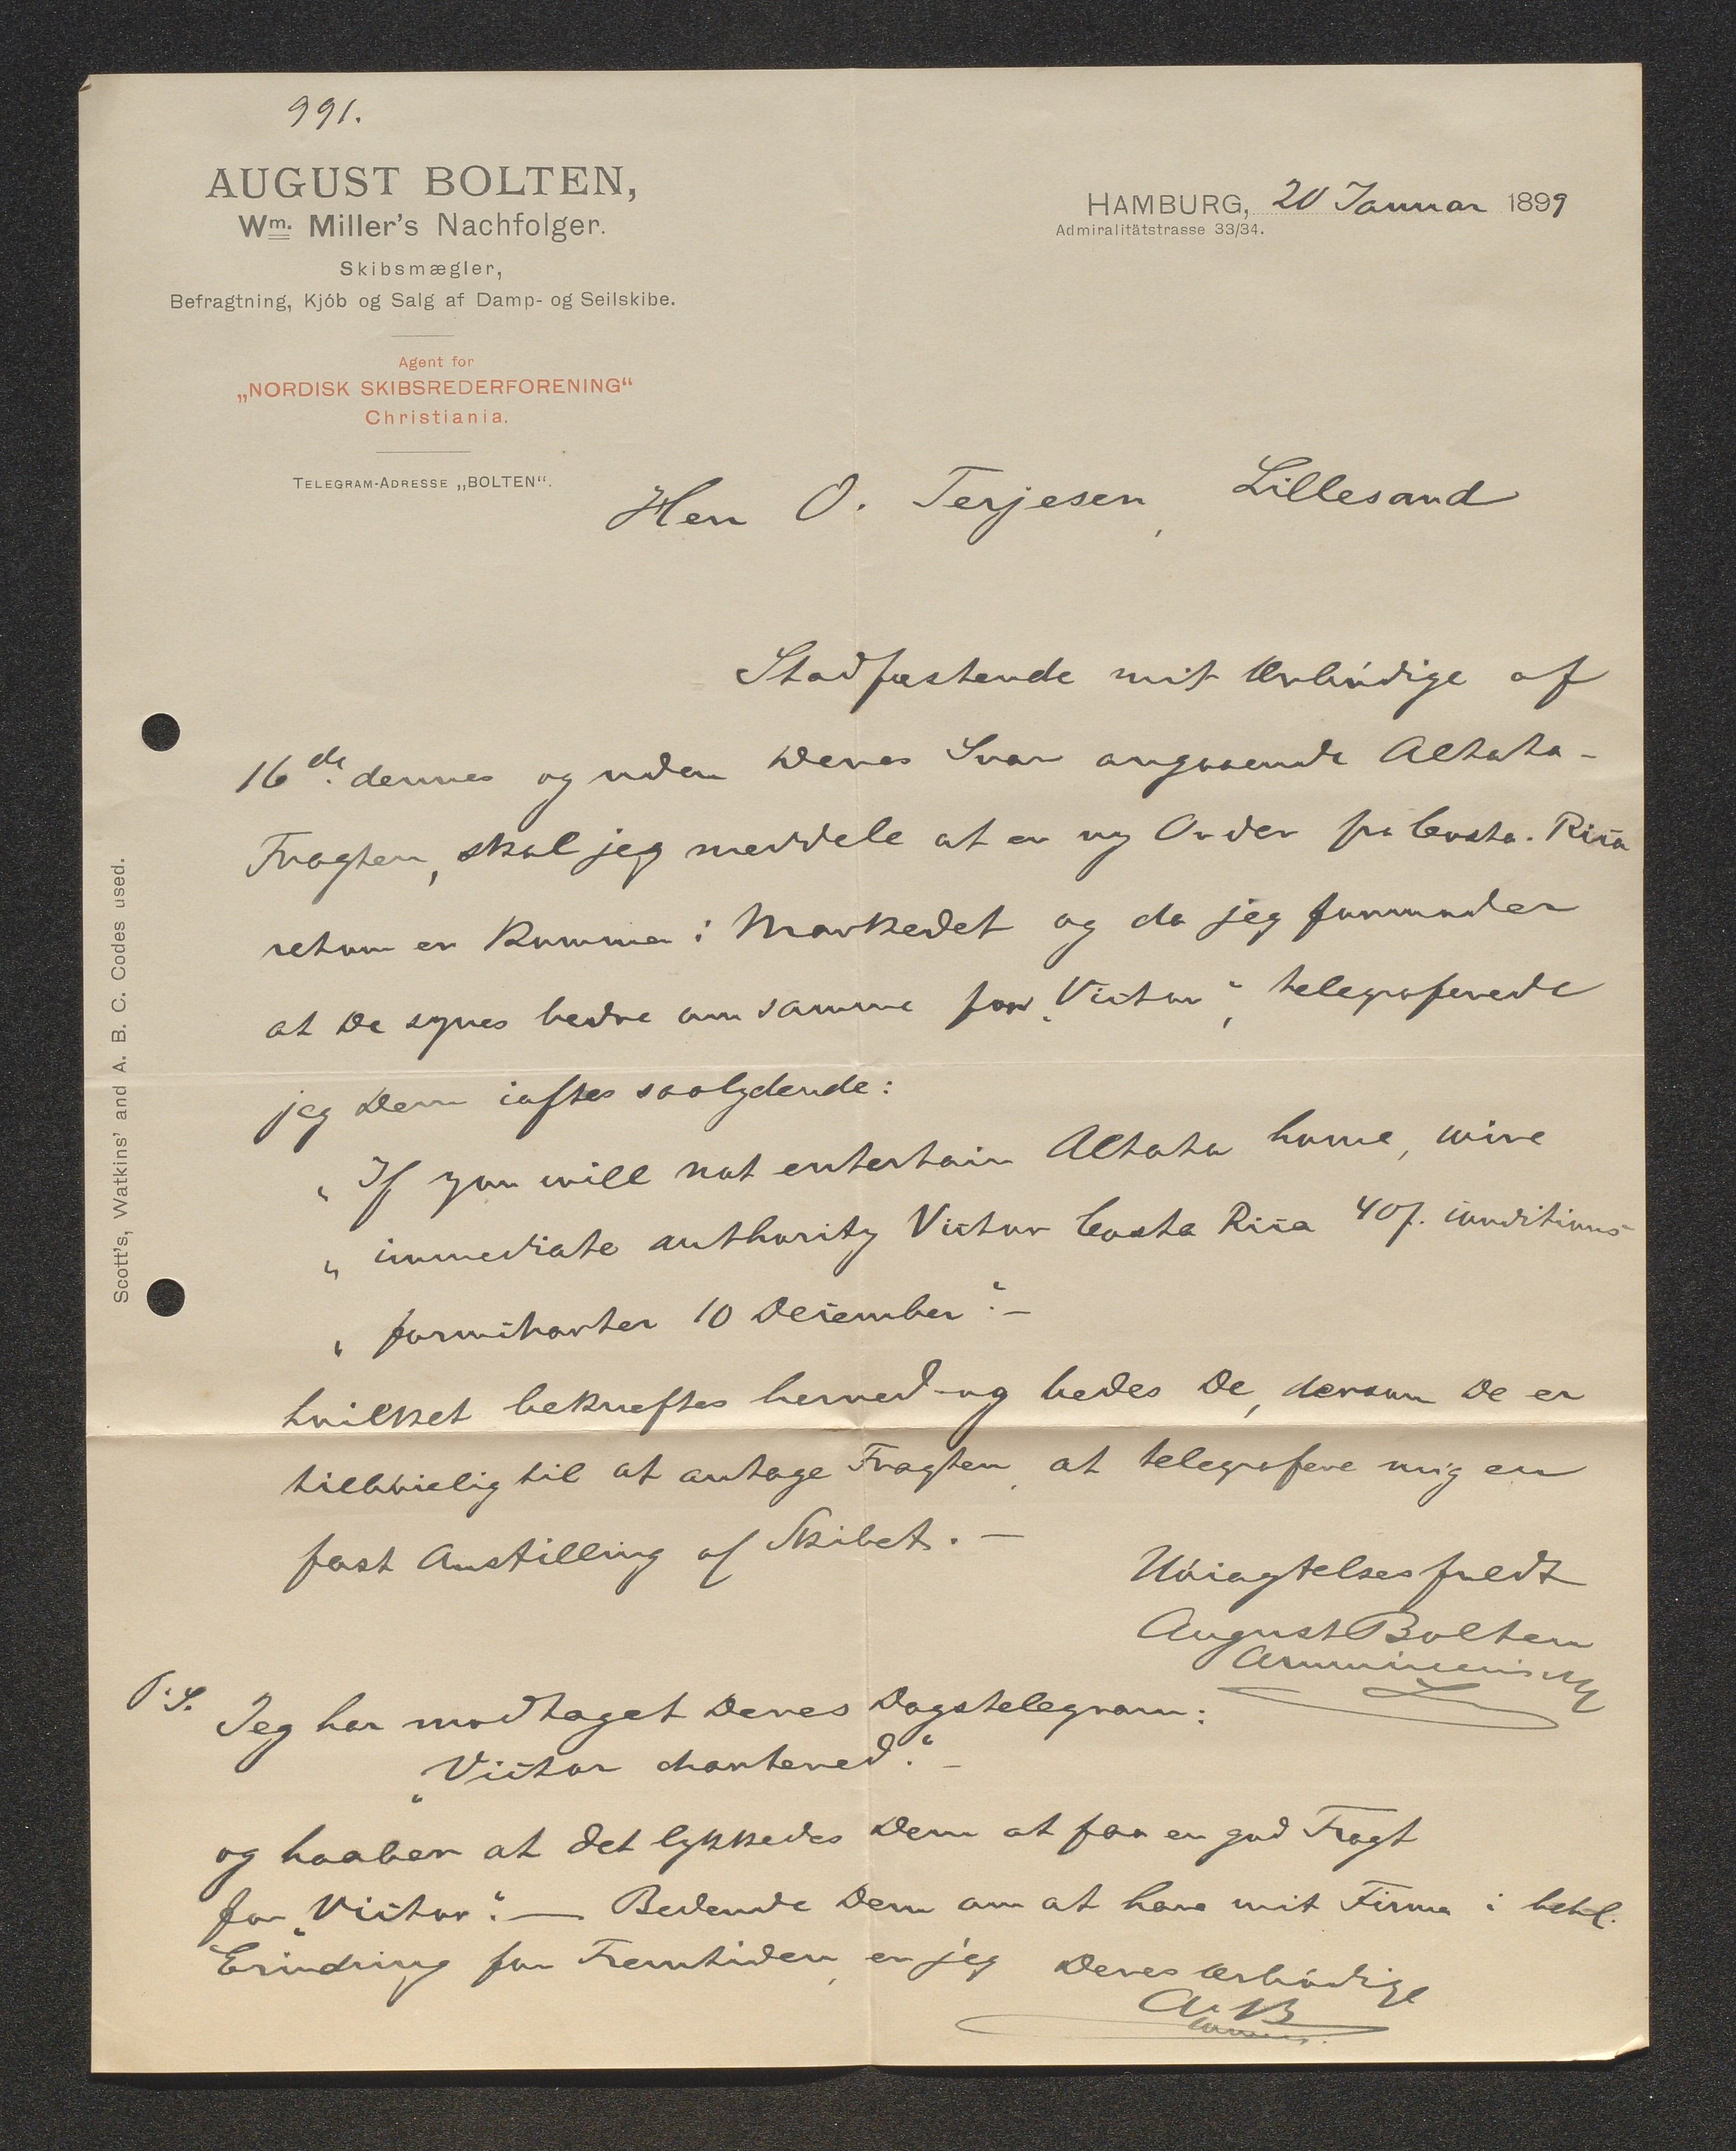 991.
AUGUST BOLTEN,
Wm. Miller's Nachfolger.
Skibsmægler,
Befragtning, Kjób og Salg af Damp- og Seilskibe.
Agent for
„NORDISK SKIBSREDERFORENING“
Christiania.
TELEGRAM-ADRESSE „BOLTEN“.
HAMBURG, 20 Januar 1899
Admiralitätstrasse 33/34.
Herr O. Terjesen, Lillesand
Stadfæstende mit Ærbódige af
16de dennes og uden Deres Svar angaaende Altata-
Fragten, skal jeg meddele at en ny Order fra Costa-Rica
retour er kommen i Markedet og da jeg formoder
at De synes bedre om samme for „Victor“, telegraferede
jeg Dem iaftes saalydende:
„If you will not entertain Altata home, wire
„immediate authority Victor Costa Rica 40/. conditions
„formcharter 10 December“. –
hvilket bekræftes herved og bedes De, dersom De er
tilbóielig til at antage Fragten, at telegrafere mig en
fast Anstilling af Skibet. –
Hóiagtelsesfuldt
August Bolten
P.S. Jeg har modtaget Deres Dagstelegram:
„Victor chartered“. –
og haaber at det lykkedes Dem at faa en god Fragt
for „Victor“. – Bedende Dem om at have mit Firma i behl.
Erindring for Fremtiden, er jeg Deres ærbódige
A. B
Scott's, Watkins' and A. B. C. Codes used.